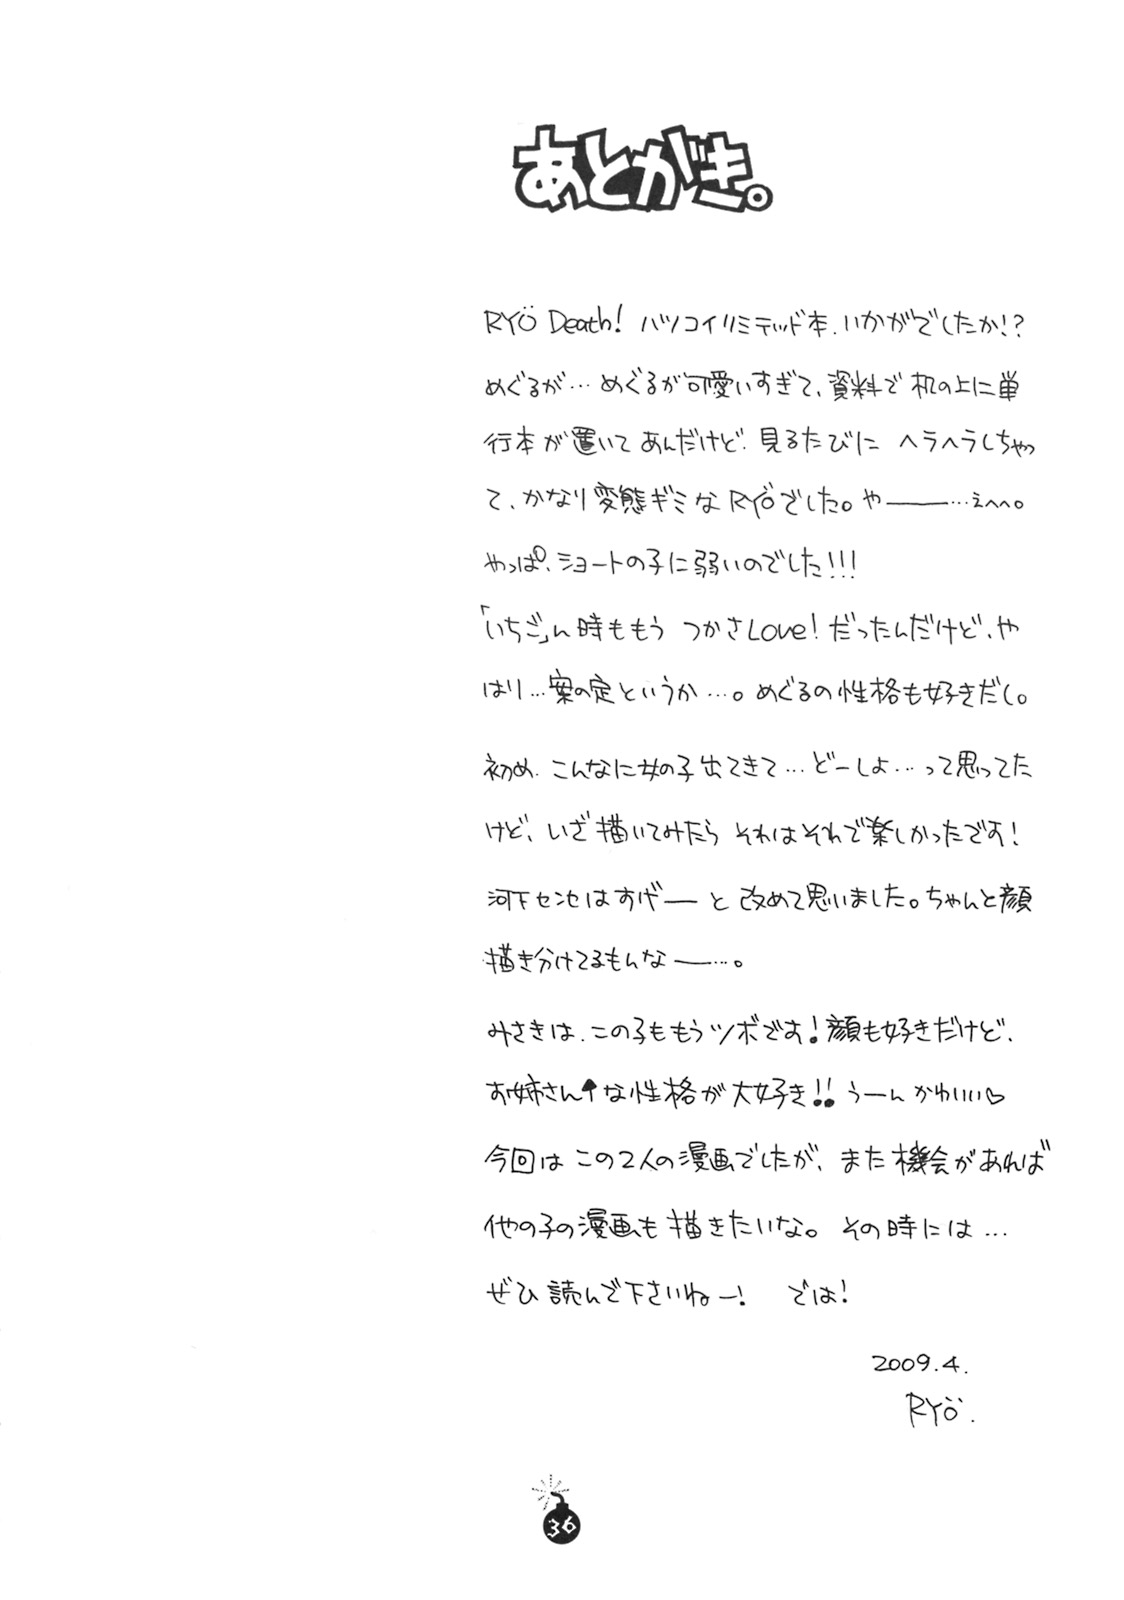 あとがき。
RYÖ Death! ハツコイリミテッド本、いかがでしたか!?
めぐるが…めぐるが可愛いすぎて、資料で机の上に単
行本が置いてあんだけど、見るたびに ヘラヘラしちゃっ
て、かなり変態ギミな RYÖでした。や――…えへへ。
やっぱ、ショートの子に弱いのでした!!!
「いちご」ん時ももう つかさLove! だったんだけど、や
はり…案の定というか…。めぐるの性格も好きだし。
初め、こんなに女の子出てきて…どーしよ…って思ってた
けど、いざ描いてみたら それはそれで楽しかったです!
河下センセはすげ―と 改めて思いました。ちゃんと顔
描き分けてるもんな――…。
みさきは、この子ももうツボです!顔も好きだけど、
お姉さん↑な性格が大好き!! うーん かわいい♡
今回は この2人の漫画でしたが、また機会があれば
他の子の漫画も描きたいな。その時には…
ぜひ 読んで下さいねー! では!
2009.4.
RYÖ.
36